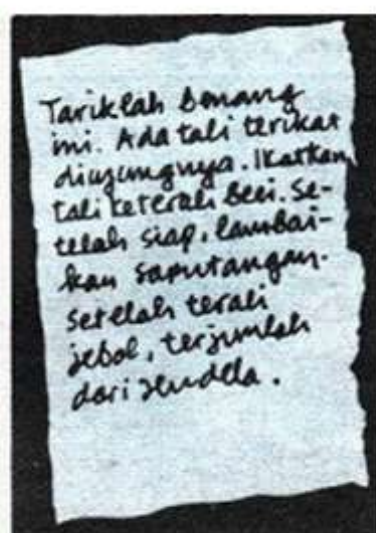 Tariklah benang
ini. Ada tali terikat
diujungnya. Ikatkan
tali keterali besi. Se-
telah siap, lambai-
kan saputangan.
Setelah terali
jebol, terjunlah
dari jendela.